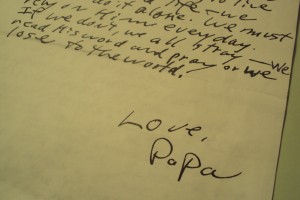 to live
life - we
do it alone. We must
rely on Him everyday.
If we don't, we all stray - We
read His word and pray or we
lose to the world!
Love,
PaPa